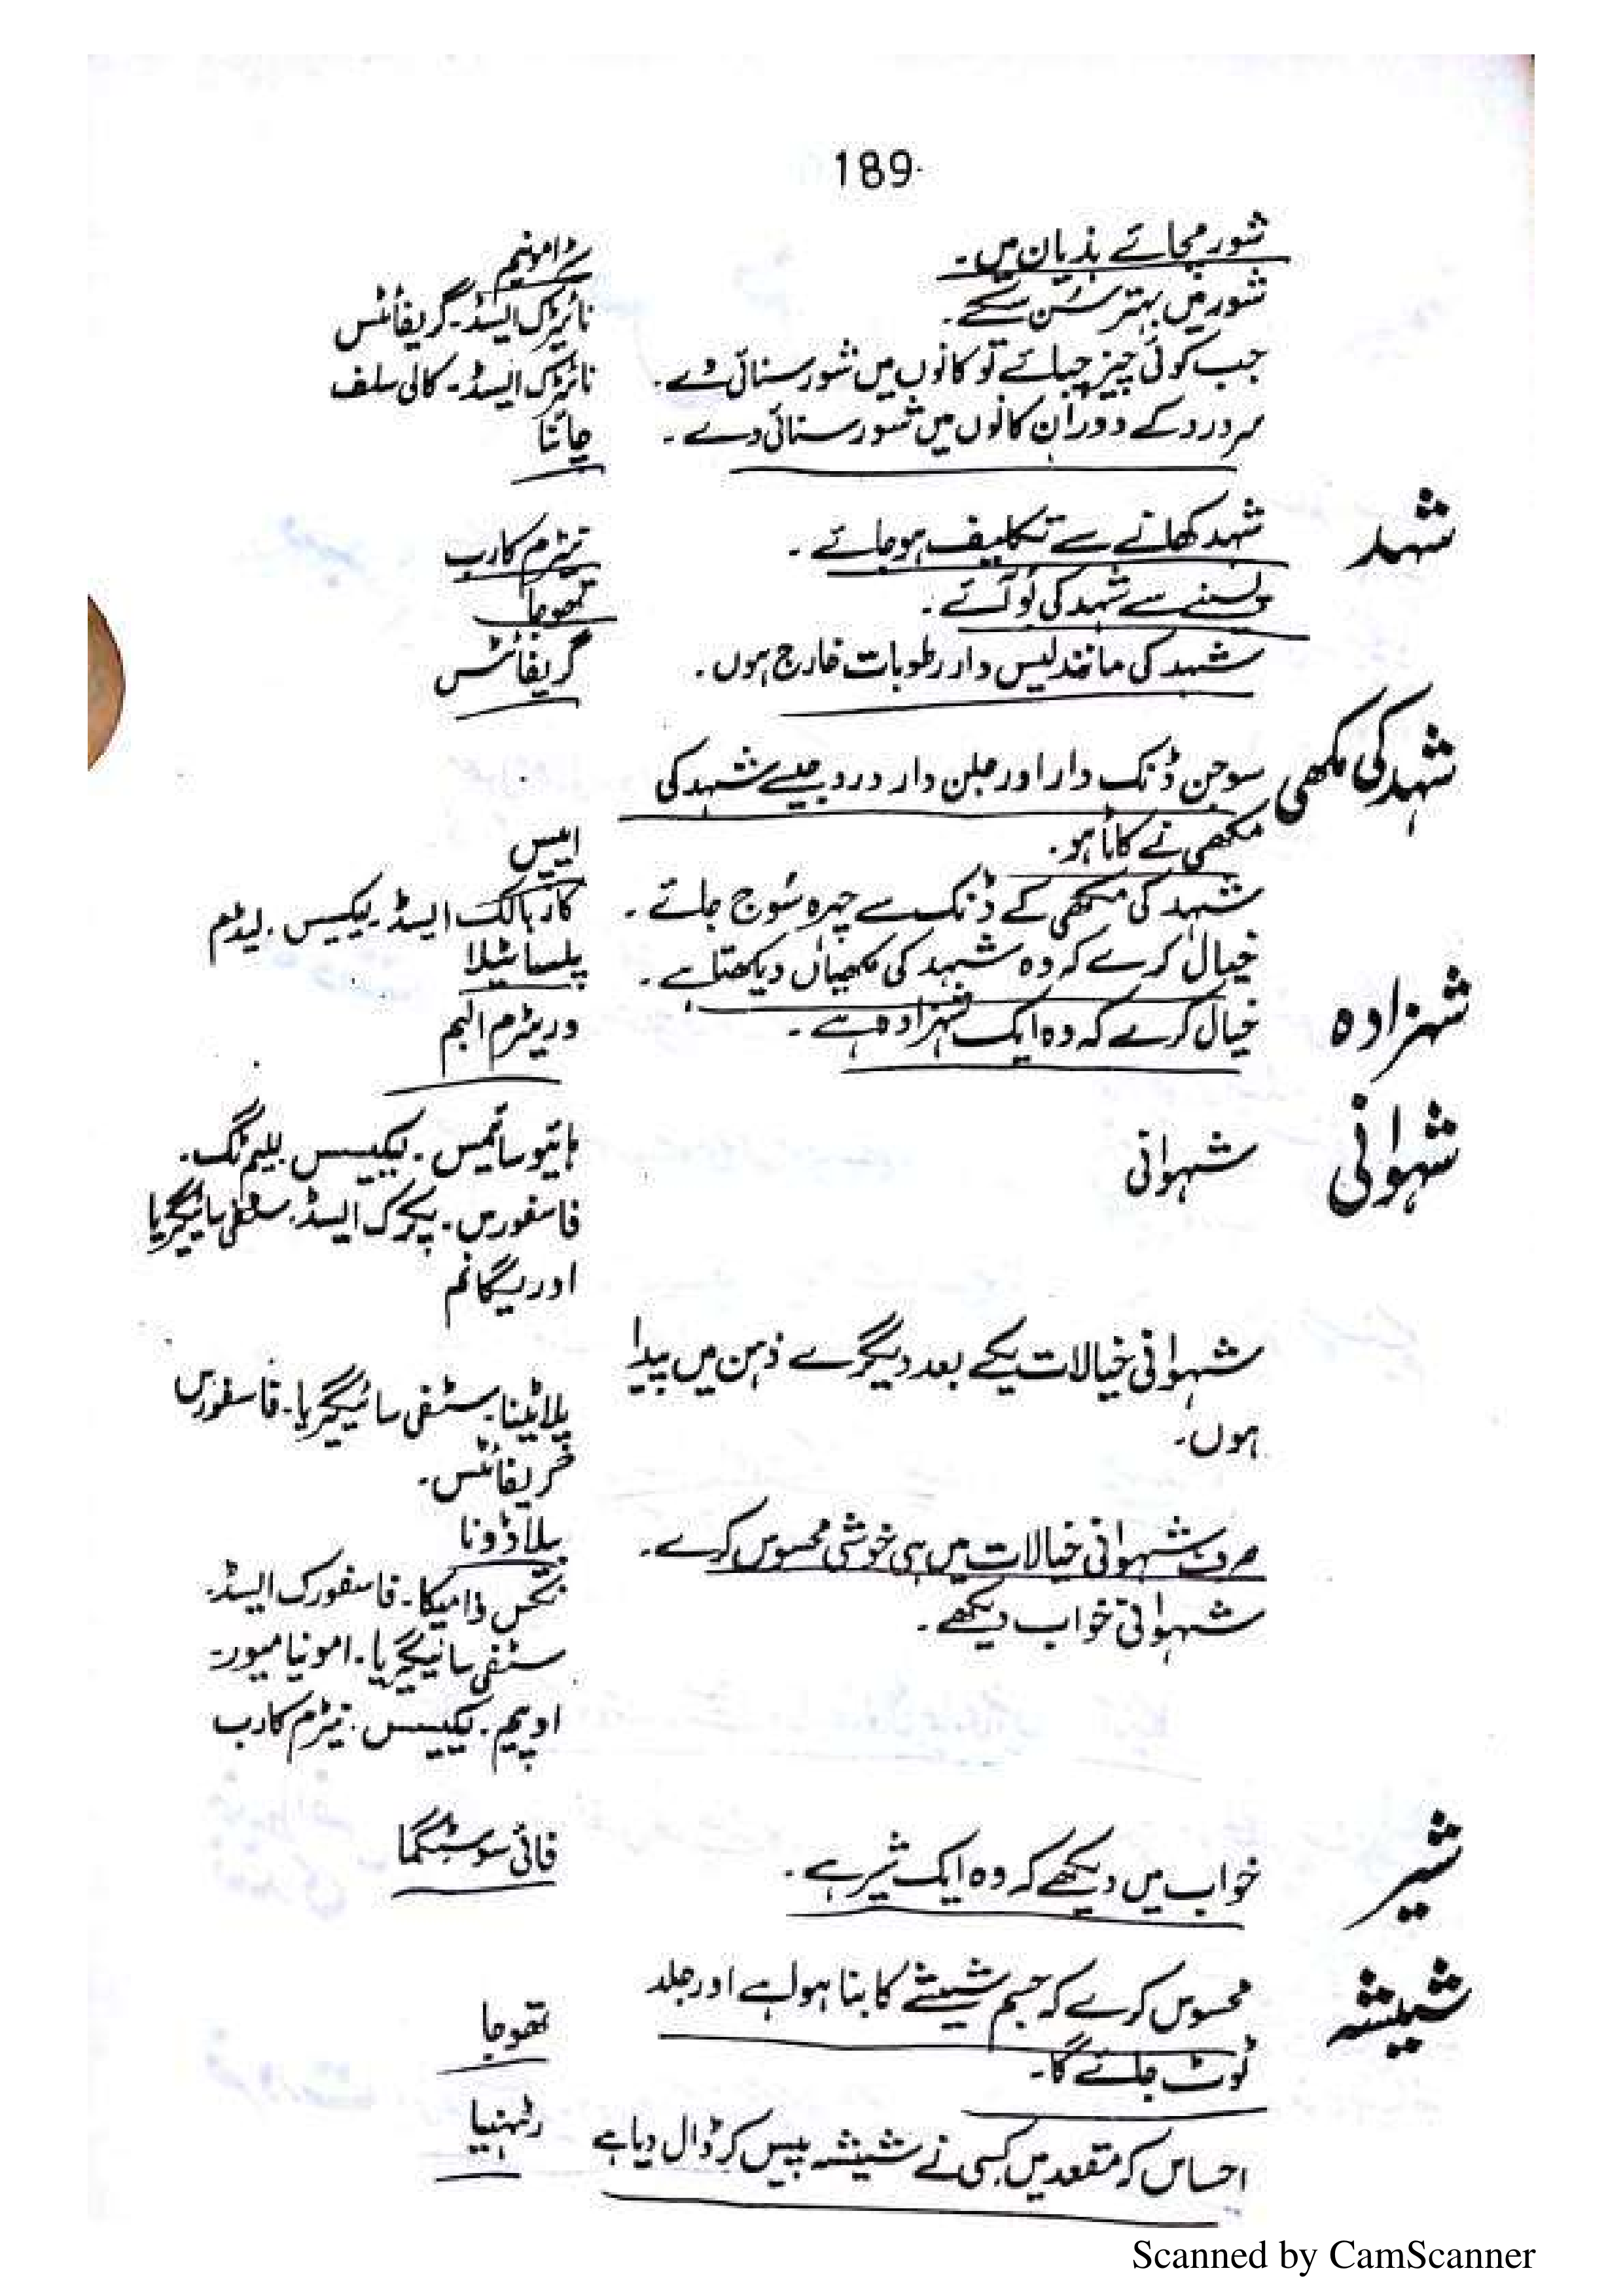 189
شور مچائے ہذیان میں۔ سٹرامونیم
شور میں بہتر سُن سکے۔ نائیٹرک ایسڈ۔ گریفائٹس
جب کوئی چیز چبائے تو کانوں میں شور سنائی دے۔ نائیٹرک ایسڈ۔ کالی سلف
سر درد کے دوران کانوں میں شور سنائی دے۔ چائنا
شہد شہد کھانے سے تکلیف ہو جائے۔ نیٹرم کارب
پسینے سے شہد کی بُو آئے۔ تھوجا
شہد کی مانند لیس دار رطوبات خارج ہوں۔ گریفائٹس
شہد کی مکھی سوجن ڈنک دار اور جلن دار درد جیسے شہد کی
مکھی نے کاٹا ہو۔ ایپس
شہد کی مکھی کے ڈنک سے چہرہ سُوج جائے۔ کاربالک ایسڈ۔ لیکیسس۔ لیڈم
خیال کرے کہ وہ شہد کی مکھیاں دیکھتا ہے۔ پلساٹیلا
شہزادہ خیال کرے کہ وہ ایک شہزادہ ہے۔ وریٹرم البم
شہوانی شہوانی ہائیوسائمس۔ لیکیسس۔ پلیم ٹگ۔
فاسفورس۔ پکرک ایسڈ۔ سٹفی سائیگریا
اوریگانم
شہوانی خیالات یکے بعد دیگرے ذہن میں پیدا
ہوں۔ پلاٹینا۔ سٹفی سائیگریا۔ فاسفورس
گریفائٹس۔
صرف شہوانی خیالات میں ہی خوشی محسوس کرے۔ بیلاڈونا
شہوانی خواب دیکھے۔ نکس وامیکا۔ فاسفورک ایسڈ۔
سٹفی سائیگریا۔ امونیا میور۔
اوپیم۔ لیکیسس۔ نیٹرم کارب
شیر خواب میں دیکھے کہ وہ ایک شیر ہے۔ فائی سوسٹگما
شیشہ محسوس کرے کہ جسم شیشے کا بنا ہوا ہے اور جلد
ٹوٹ جائے گا۔ تھوجا
احساس کہ مقعد میں کسی نے شیشہ پیس کر ڈال دیا ہے رٹہنیا
Scanned by CamScanner